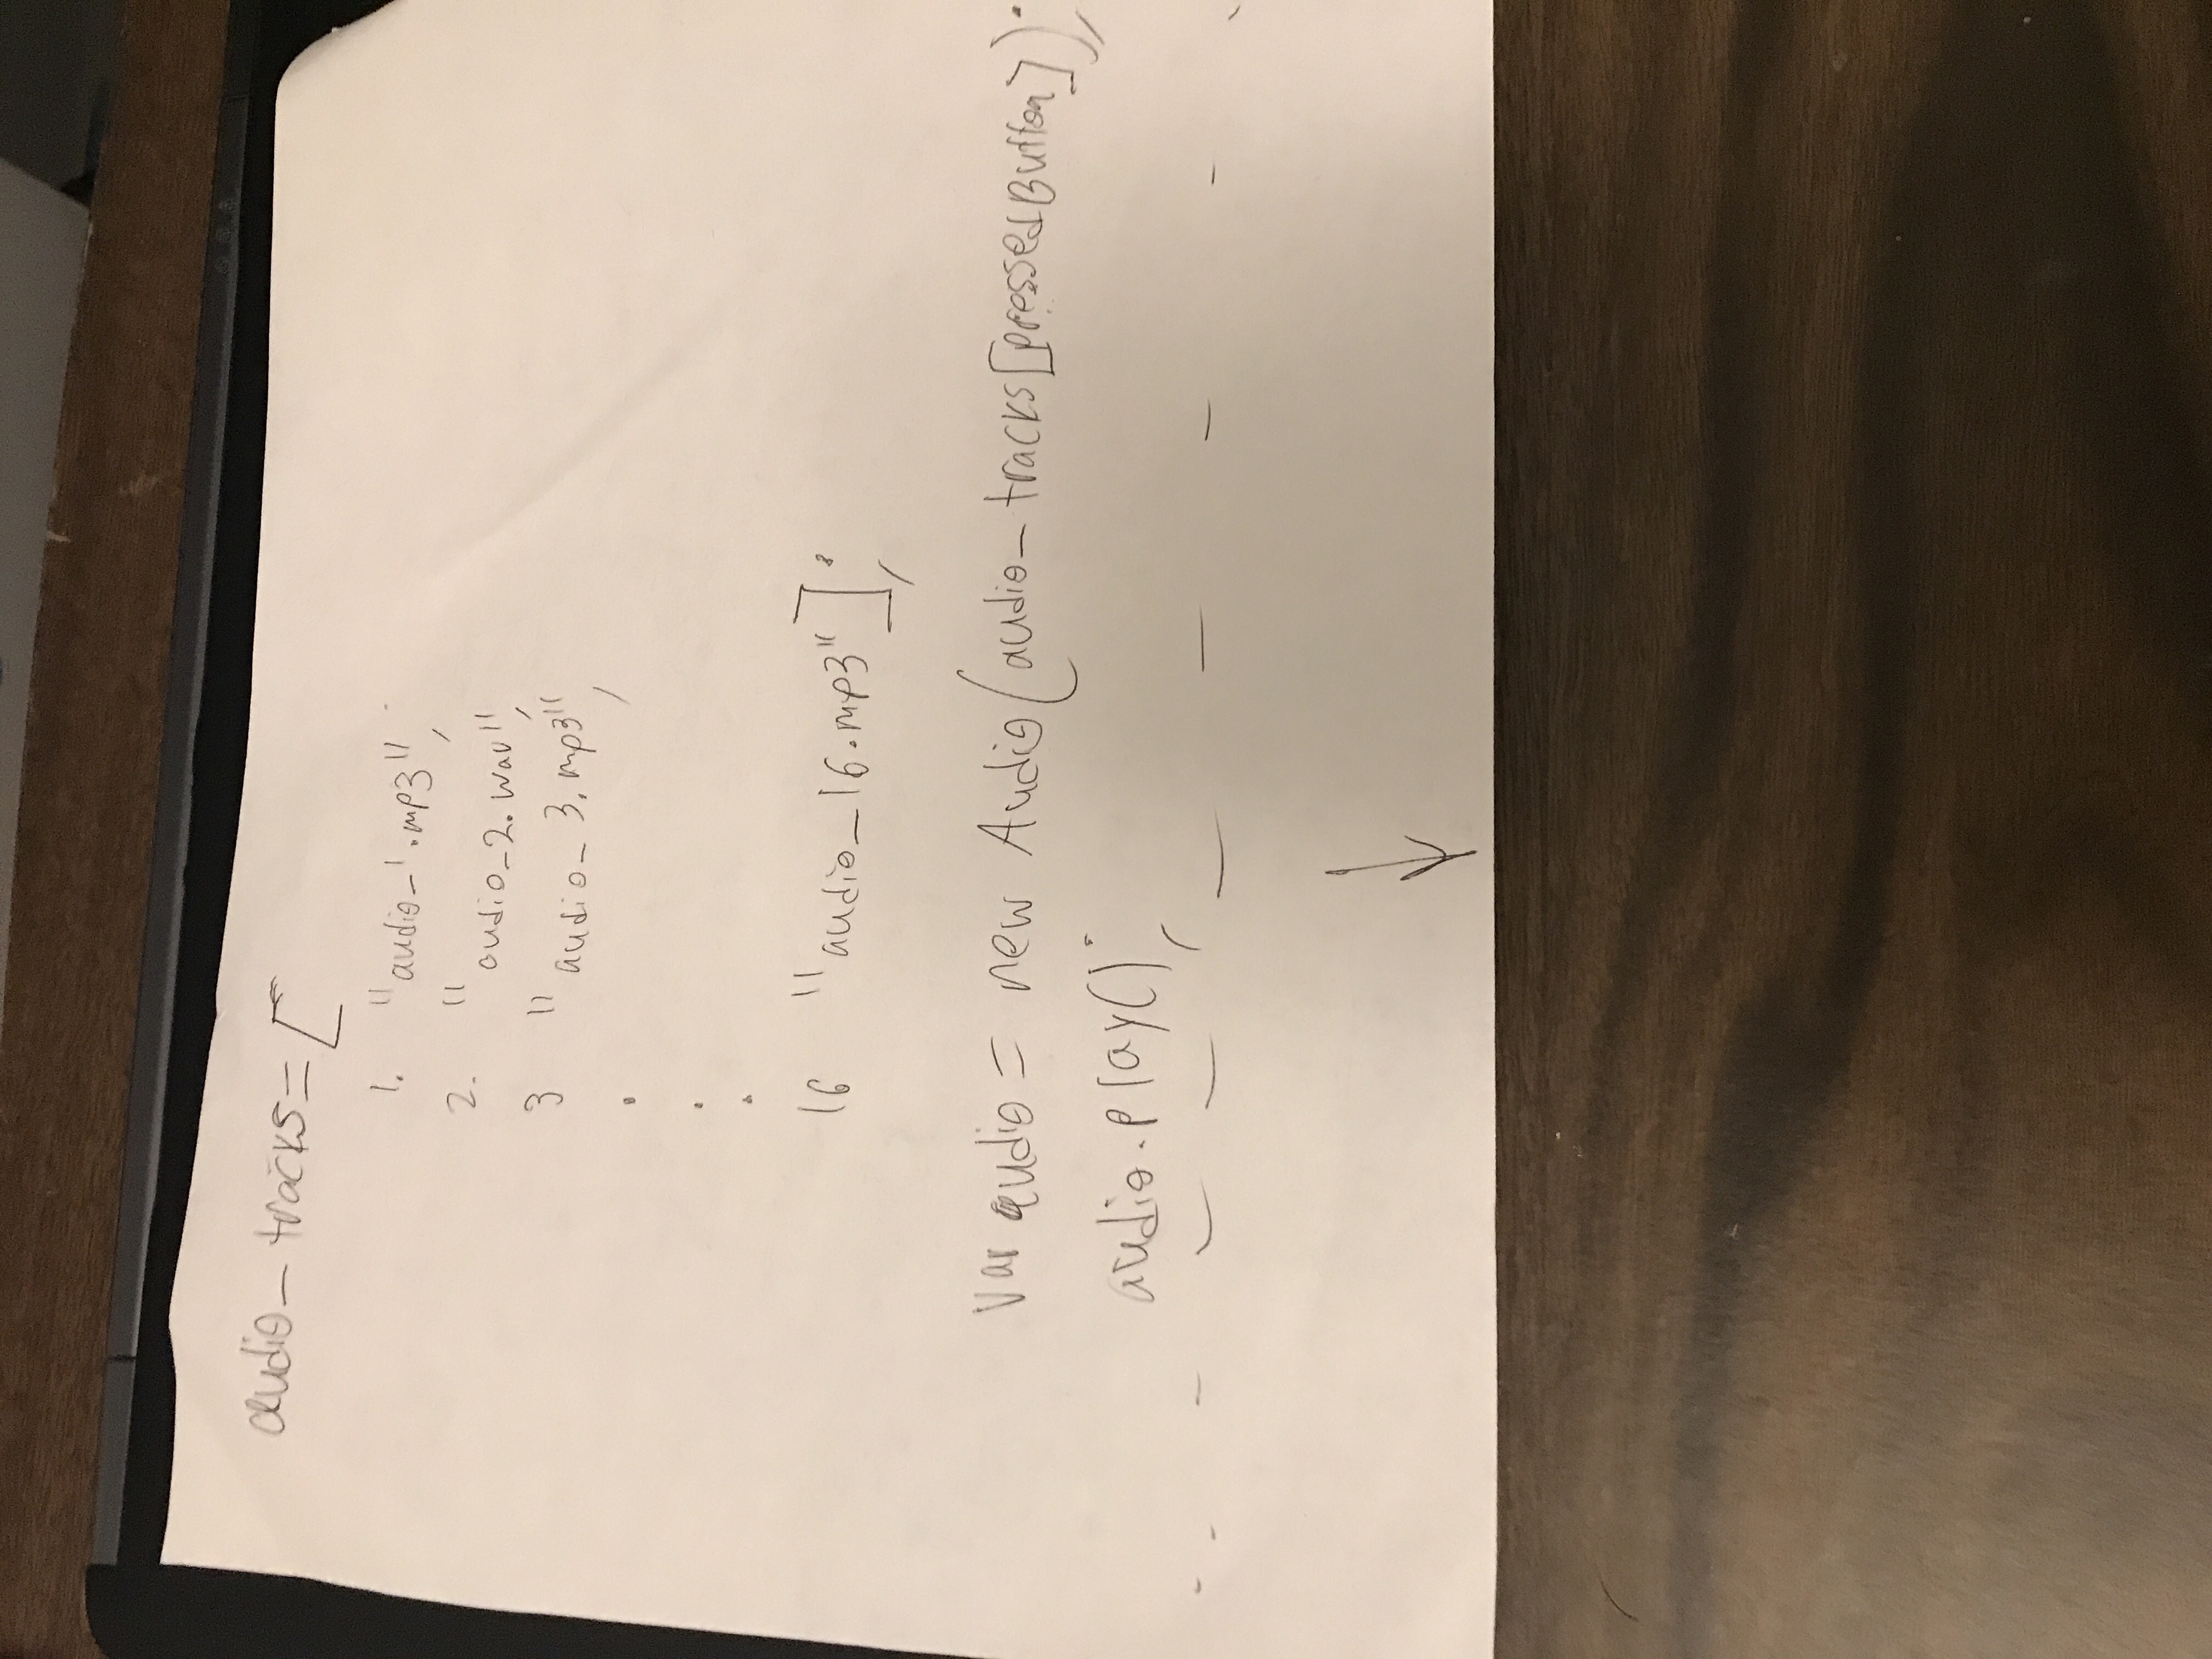 audio_tracks=[
1. "audio_1.mp3",
2. "audio_2.wav",
3 "audio_3.mp3",
.
.
.
16 "audio_16.mp3"];
Var audio = new Audio(audio_tracks[pressedButton]);
audio.play();